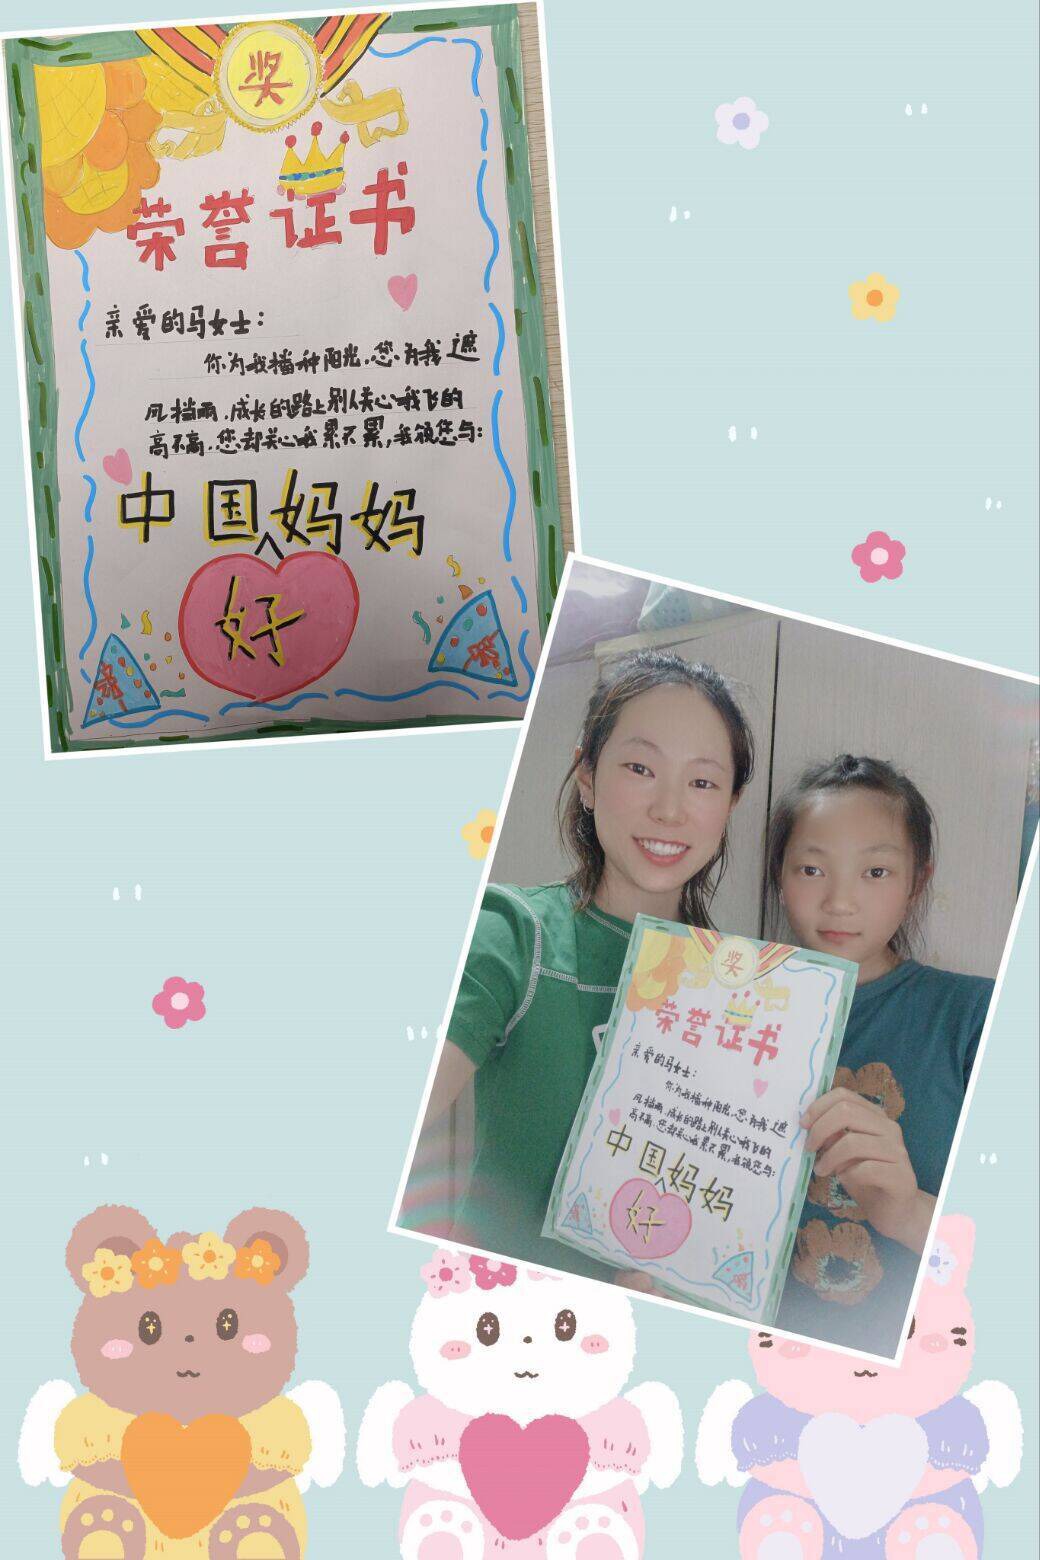 奖
荣誉证书
亲爱的马女士：
你为我播种阳光,您为我遮
风挡雨,成长的路上别人关心我飞的
高不高,您却关心我累不累,我颁您与:
中国妈妈
好
奖
荣誉证书
亲爱的马女士：
你为我播种阳光,您为我遮
风挡雨,成长的路上别人关心我飞的
高不高,您却关心我累不累,我颁您与:
中国妈妈
好